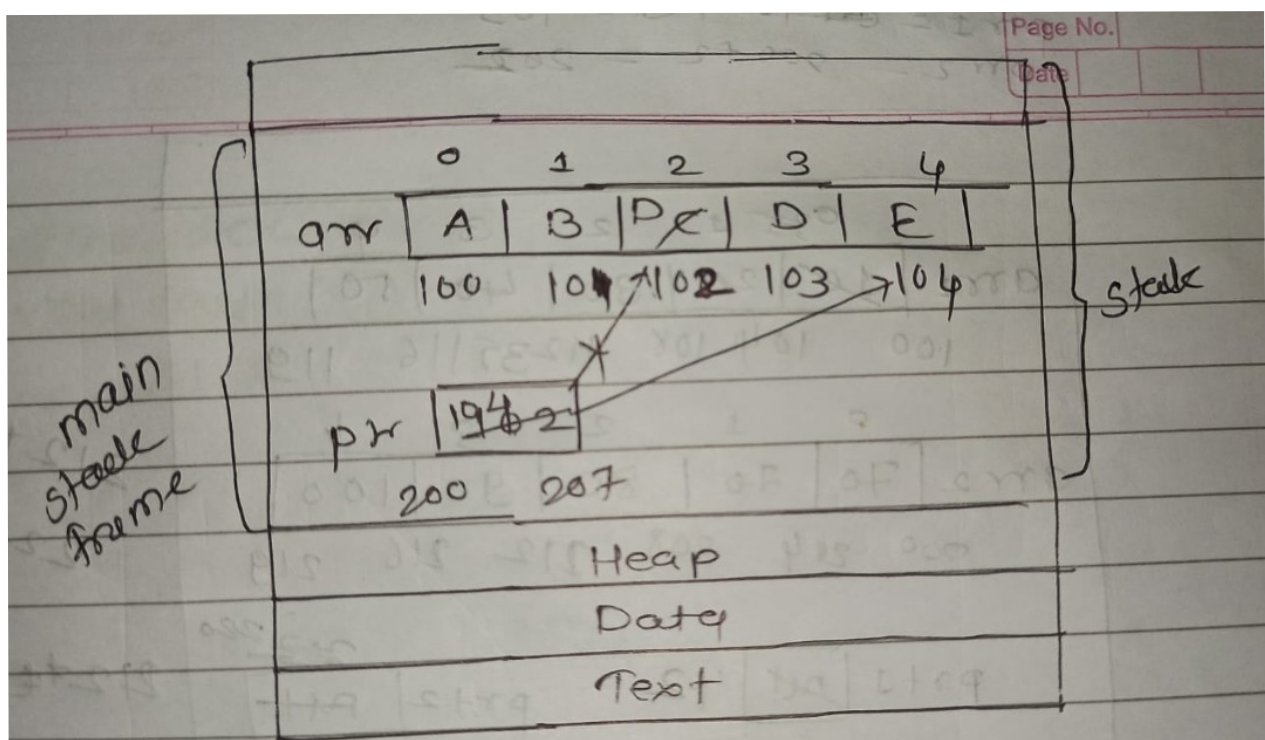 Page No.
Date
0 1 2 3 4
arr A B D C D E
100 101 102 103 104
stack
main
stack
frame
ptr
200 207
Heap
Data
Text